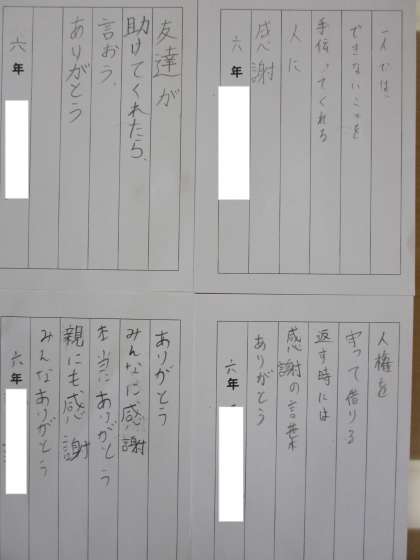 一人では、
できないことを
手伝ってくれる
人に
感謝
六年
友達が
助けてくれたら、
言おう、
ありがとう
六年
人権を
守って借りる
返す時には
感謝の言葉
ありがとう
六年
ありがとう
みんなに感謝
本当にありがとう
親にも感謝
みんなありがとう
六年